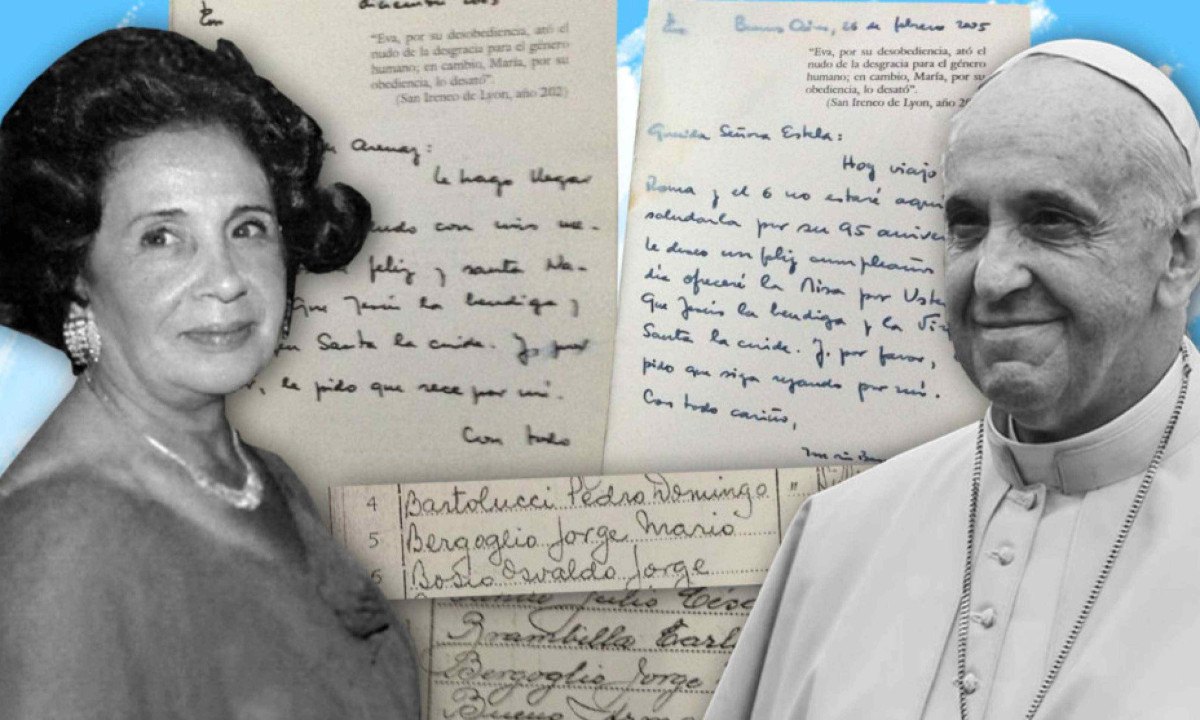 diciembre 2003
"Eva, por su desobediencia, ató el
nudo de la desgracia para el género
humano; en cambio, María, por su
obediencia, lo desató".
(San Ireneo de Lyon, año 202)
Arenaz:
le hago llegar
con mis me-
feliz y santa Na-
Que Jesús la bendiga y
Santa la cuide. Y, por
, le pido que rece por mí.
Con todo
Buenos Aires, 26 de febrero 2005
"Eva, por su desobediencia, ató el
nudo de la desgracia para el género
humano; en cambio, María, por su
obediencia, lo desató".
(San Ireneo de Lyon, año 20
Querida Señora Estela:
Hoy viajo
Roma y el 6 no estaré aquí
saludarla por su 95 aniver
Le deseo un feliz cumpleaños
día ofreceré la Misa por Uste
Que Jesús la bendiga y la Vir
Santa la cuide. Y, por favor,
pido que siga rezando por mí.
Con todo cariño,
4 Bartolucci Pedro Domingo "
5 Bergoglio Jorge Mario
6 Bosio Osvaldo Jorge
Julio Cés
Brambilla Carl
Bergoglio Jorge
Bueno